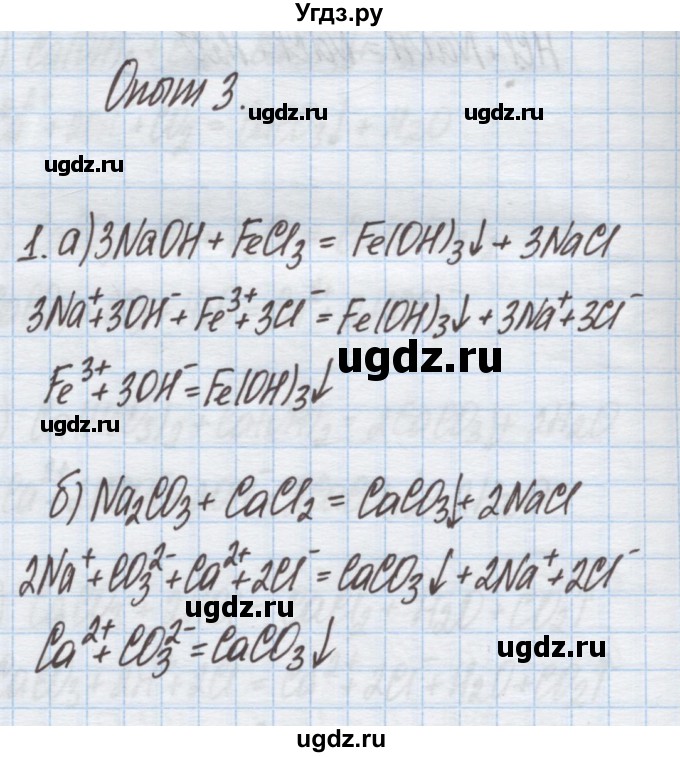 Угдз.ру
Опыт 3.
ugdz.ru ugdz.ru
ugdz.ru
1. а) 3NaOH + FeCl₃ = Fe(OH)₃↓ + 3NaCl
3Na⁺+3OH⁻ + Fe³⁺+3Cl⁻ = Fe(OH)₃↓ + 3Na⁺+3Cl⁻
ugdz.ru
Fe³⁺+3OH⁻ = Fe(OH)₃↓
ugdz.ru
б) Na₂CO₃ + CaCl₂ = CaCO₃↓ + 2NaCl
2Na⁺+CO₃²⁻+Ca²⁺+2Cl⁻ = CaCO₃↓ + 2Na⁺+2Cl⁻
ugdz.ru
Ca²⁺+CO₃²⁻ = CaCO₃↓
ugdz.ru
ugdz.ru